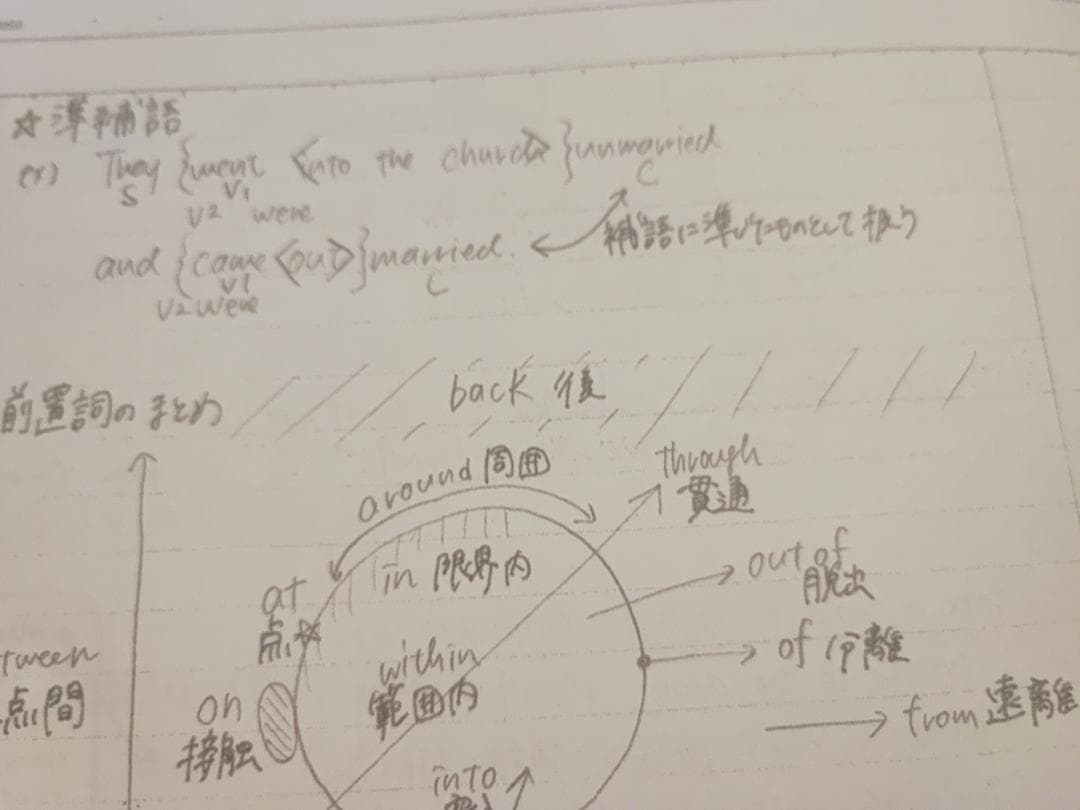 ☆準補語
ex) They {went <into the church>} unmarried
S V1 C
V2 were
and {came <out>} married.
V1 C
V2 were
補語に準じたものとして扱う
back 後
前置詞のまとめ
around 周囲
through
貫通
in 限界内
out of
脱出
at
点
of 分離
within
範囲内
tween
点間
on
接触
from 遠離
into